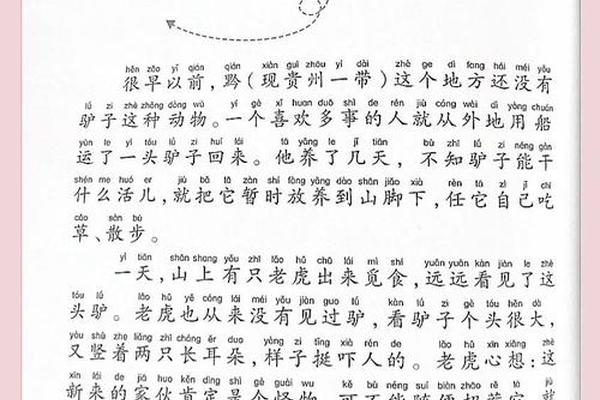 hěn zǎo yǐ qián qián xiàn guì zhōu yí dài zhè ge dì fang hái méi yǒu
很早以前，黔（现贵州一带）这个地方还没有
lǘ zi zhè zhǒng dòng wù yí gè xǐ huan duō shì de rén jiù cóng wài dì yòng chuán
驴子这种动物。一个喜欢多事的人就从外地用船
yùn le yì tóu lǘ zi huí lái tā yǎng le jǐ tiān bù zhī lǘ zi néng gàn
运了一头驴子回来。他养了几天，不知驴子能干
shén me huó er jiù bǎ tā zàn shí fàng yǎng dào shān jiǎo xià rèn tā zì jǐ chī
什么活儿，就把它暂时放养到山脚下，任它自己吃
cǎo sàn bù
草、散步。
yì tiān shān shang yǒu zhī lǎo hǔ chū lái mì shí yuǎn yuǎn kàn jiàn le zhè
一天，山上有只老虎出来觅食，远远看见了这
tóu lǘ lǎo hǔ yě cóng lái méi yǒu jiàn guo lǘ kàn lǘ zi gè tóu hěn dà
头驴。老虎也从来没有见过驴，看驴子个头很大，
yòu shù zhe liǎng zhī cháng ěr duo yàng zi tǐng xià rén de lǎo hǔ xīn xiǎng zhè
又竖着两只长耳朵，样子挺吓人的。老虎心想：这
xīn lái de jiā huo kěn dìng shì gè guài wu kě bù néng suí biàn zhāo rě tā jiù
新来的家伙肯定是个怪物，可不能随便招惹它，就